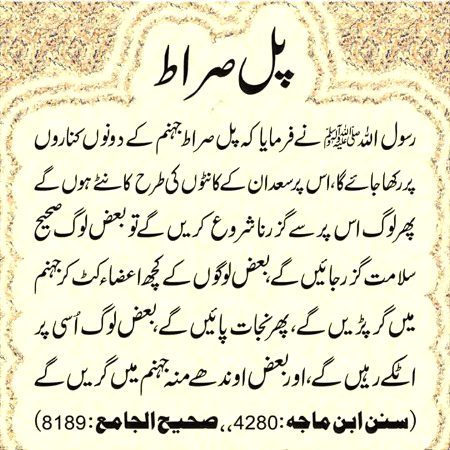 پل صراط
رسول اللہ ﷺ نے فرمایا کہ پل صراط جہنم کے دونوں کناروں
پر رکھا جائے گا، اس پر سعدان کے کانٹوں کی طرح کانٹے ہوں گے
پھر لوگ اس پر سے گزرنا شروع کریں گے تو بعض لوگ صحیح
سلامت گزر جائیں گے، بعض لوگوں کے کچھ اعضاء کٹ کر جہنم
میں گر پڑیں گے، پھر نجات پائیں گے، بعض لوگ اُسی پر
اٹکے رہیں گے، اور بعض اوندھے منہ جہنم میں گریں گے
(سنن ابن ماجه: 4280،، صحیح الجامع: 8189)